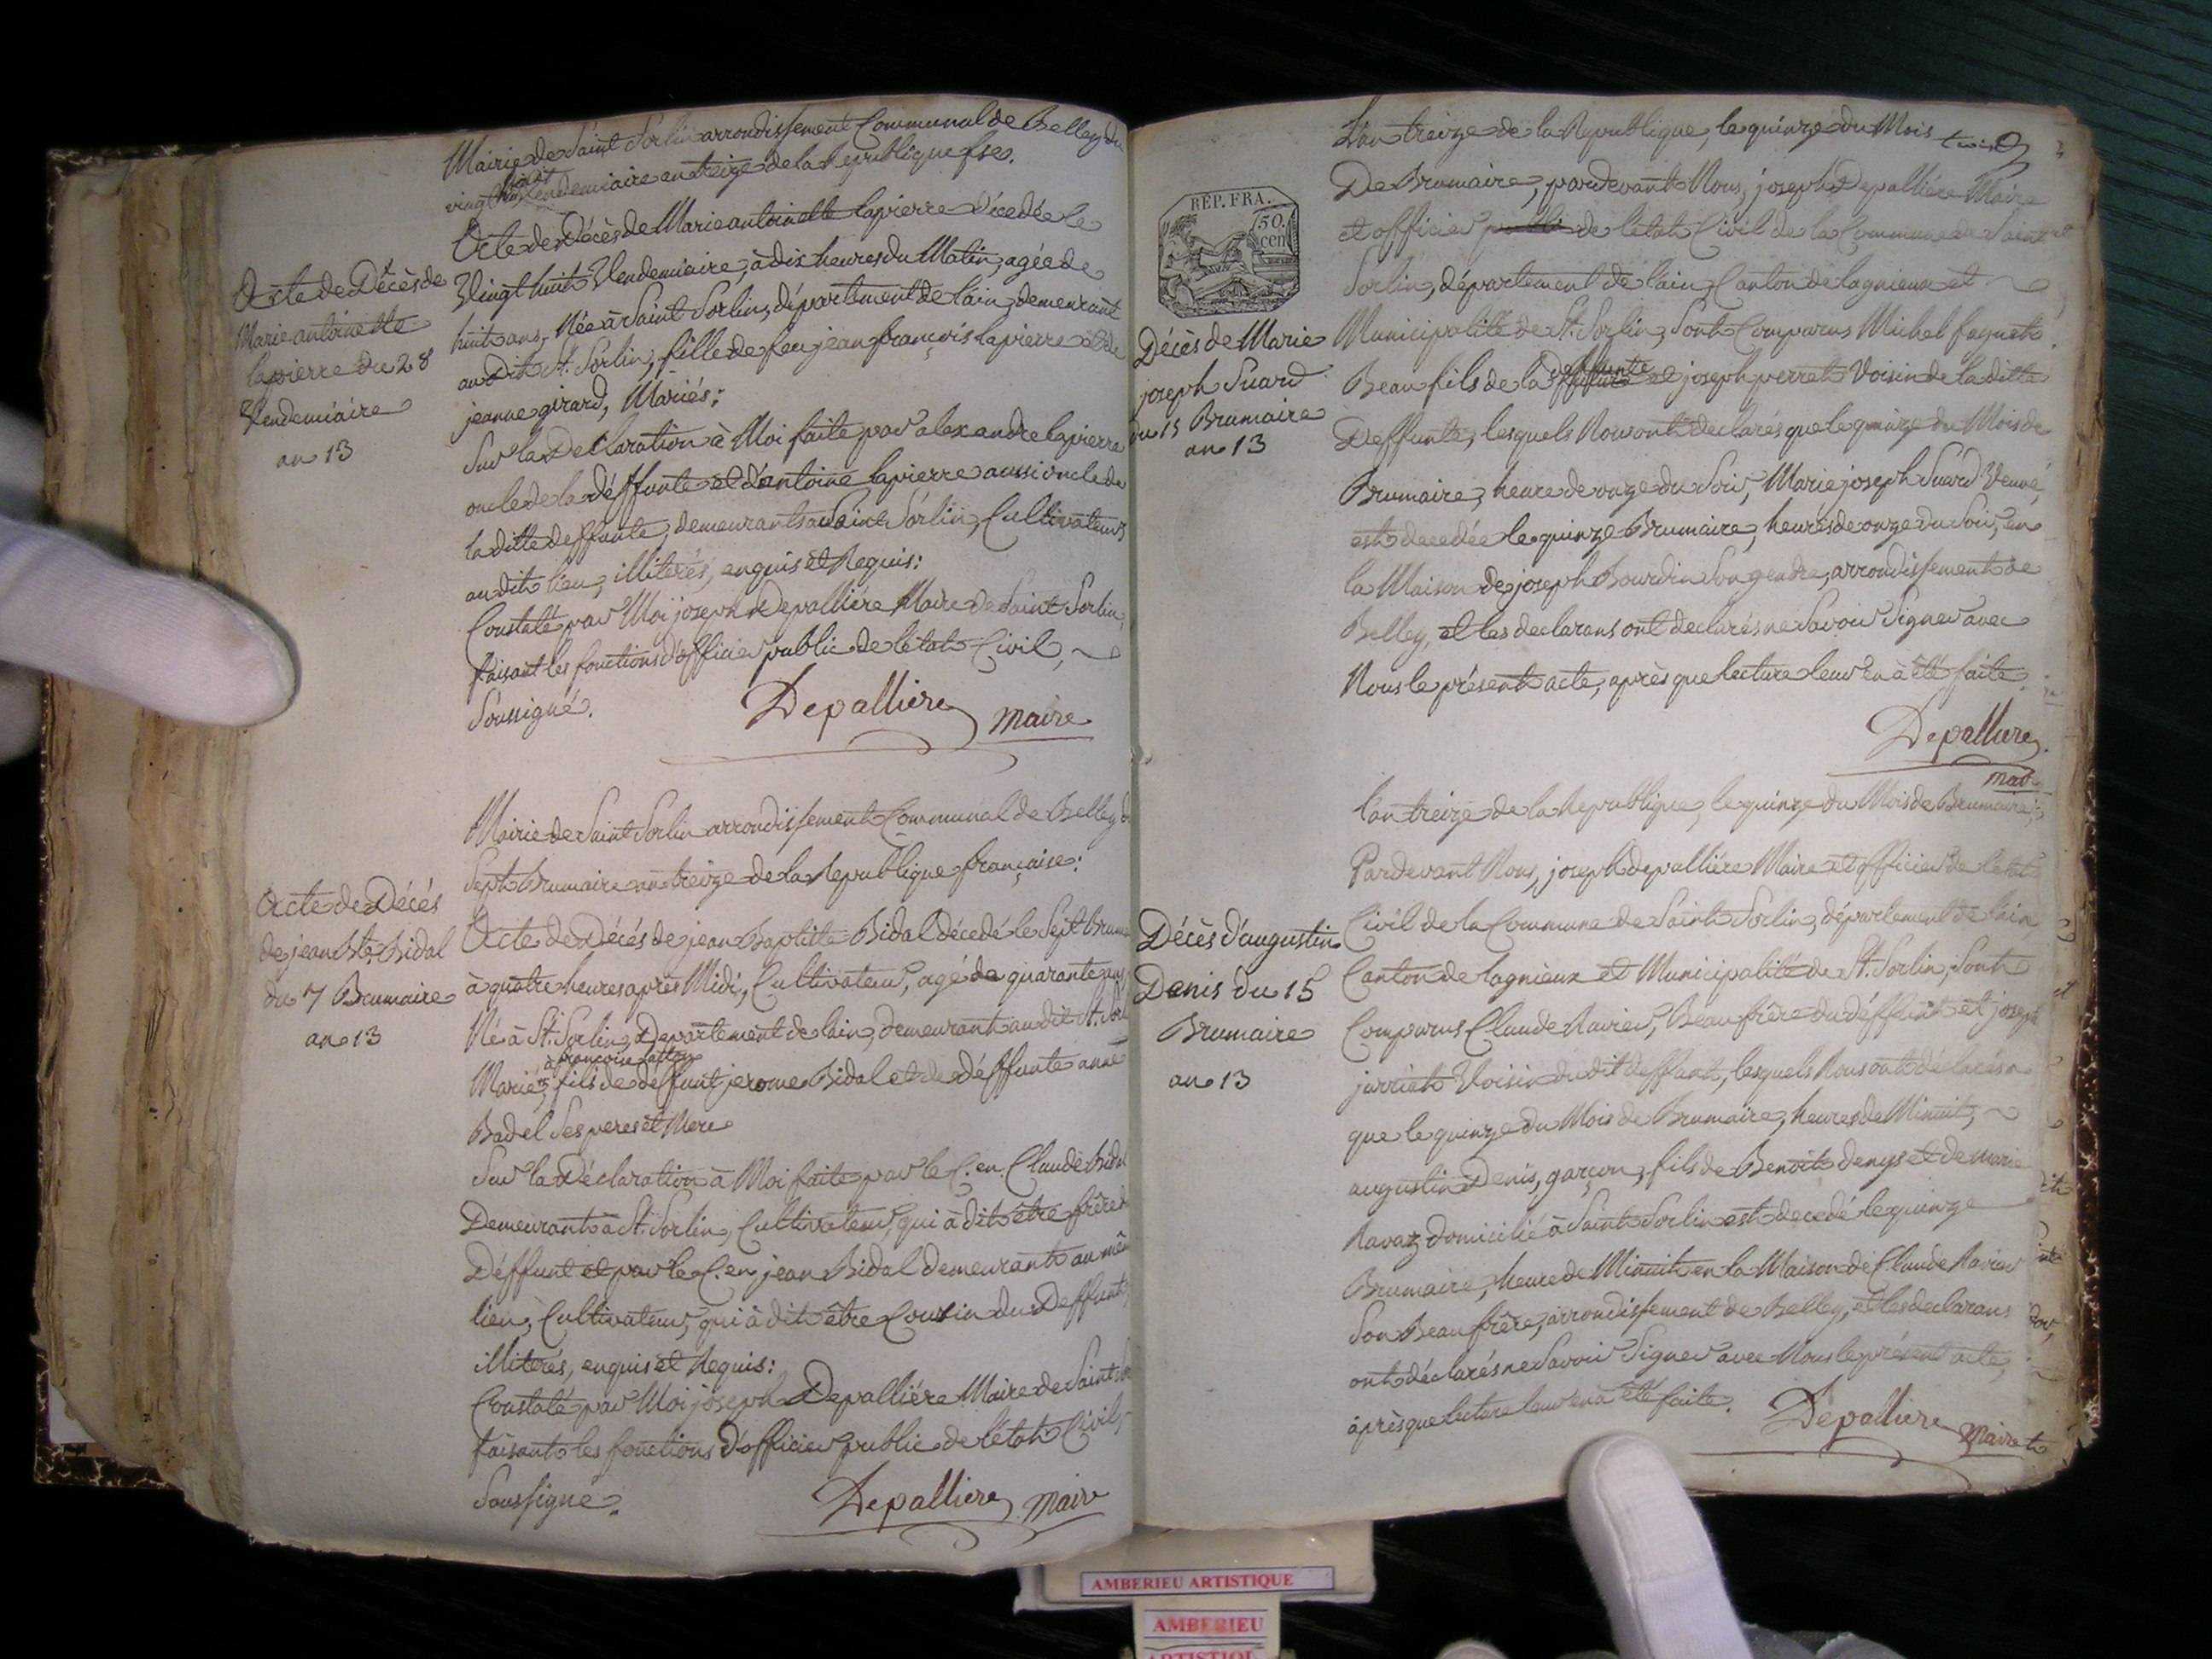 Mairie de Saint Sorlin arrondissement Communal de Belley du
vingt huit Vendemiaire an treize de la Republique fse.
Acte de Décès de
Marie antoinette
lapierre du 28
Vendemiaire
an 13
Acte de Décès de Marie antoinette lapierre Décedée le
Vingt huit Vendemiaire, à dix heures du Matin, agée de
huit ans, Née à Saint Sorlin, département de lain, demeurant
audit St. Sorlin, fille de feu jean françois lapierre et de
jeanne girard, Mariés:
Sur la Declaration à Moi faite par alexandre lapierre
oncle de la déffunte et d'antoine lapierre aussi oncle de
la ditte deffunte, demeurants a Saint Sorlin, Cultivateurs
audit lieu, illiterés, enquis et Requis:
Constaté par Moi joseph Depalliére Maire de Saint Sorlin,
faisant les fonctions d'officier public de l'état Civil,
Soussigné.
Depalliere maire
Mairie de Saint Sorlin arrondissement Communal de Belley
Sept Brumaire an treize de la Republique française:
Acte de Décés
de jean Bte. Bidal
du 7 Brumaire
an 13
Acte de Décés de jean Baptiste Bidal décedé le Sept
à quatre heures après Midi, Cultivateur, agé de quarante ans
Né à St. Sorlin, Departement de lain, demeurant audit St.
à françoise
Marié, fils de déffunt jerome Bidal et de déffunte anne
Badel Ses peres et Mere
Sur la Déclaration à Moi faite par le C.en Claude Bidal
Demeurant à St. Sorlin, Cultivateur, qui à dit être frêre
Déffunt et par le C.en jean Bidal demeurant au même
lieu, Cultivateur, qui à dit être Cousin du Deffunt,
illiterés, enquis et Requis:
Constaté par Moi joseph Depalliére Maire de Saint
faisant les fonctions d'officier public de l'état Civil,
Soussigné.
Depalliere maire
trois
RÉP. FRA.
50.
cen
Décès de Marie
joseph Suard
du 15 Brumaire
an 13
L'an treize de la Republique, le quinze du Mois
De Brumaire, pardevant Nous, joseph Depalliére Maire
et officier de l'état Civil de la Commune de Saint
Sorlin, département de lain, Canton de lagnieux et
Municipalité de St. Sorlin, Sont Comparus Michel faguet
deffunte
Beau fils de la et joseph perret Voisin de la ditte
Deffunte, lesquels Nous ont declarés que le quinze du Mois de
Brumaire, heure de onze du Soir, Marie joseph Suard Veuve,
est decedée le quinze Brumaire, heures de onze du Soir, en
la Maison de joseph Bourdin Son gendre, arrondissement de
Belley, et les declarans ont declarés ne Savoir Signer avec
Nous le présent acte, après que lecture leur en à été faite.
Depalliere
maire
Décès d'augustin
Denis du 15
Brumaire
an 13
L'an treize de la Republique, le quinze du Mois de Brumaire,
Pardevant Nous, joseph depalliére Maire et officier de l'état
Civil de la Commune de Saint Sorlin, département de lain,
Canton de lagnieux et Municipalité de St. Sorlin, Sont
Comparus Claude Ravier, Beau frêre du déffunt et joseph
juvriat Voisin du dit deffunt, lesquels Nous ont déclarés
que le quinze du Mois de Brumaire, heures de Minuit,
augustin Denis, garçon, fils de Benoit denys et de marie
Ravaz domicilié à Saint Sorlin est decedé le quinze
Brumaire, heure de Minuit en la Maison de Claude Ravier
Son Beau frêre, arrondissement de Belley, et les declarans
ont déclarés ne Savoir Signer avec Nous le présent acte,
après que lecture leur en à été faite.
Depalliere Maire
AMBERIEU ARTISTIQUE
AMBERIEU
ARTISTIQUE